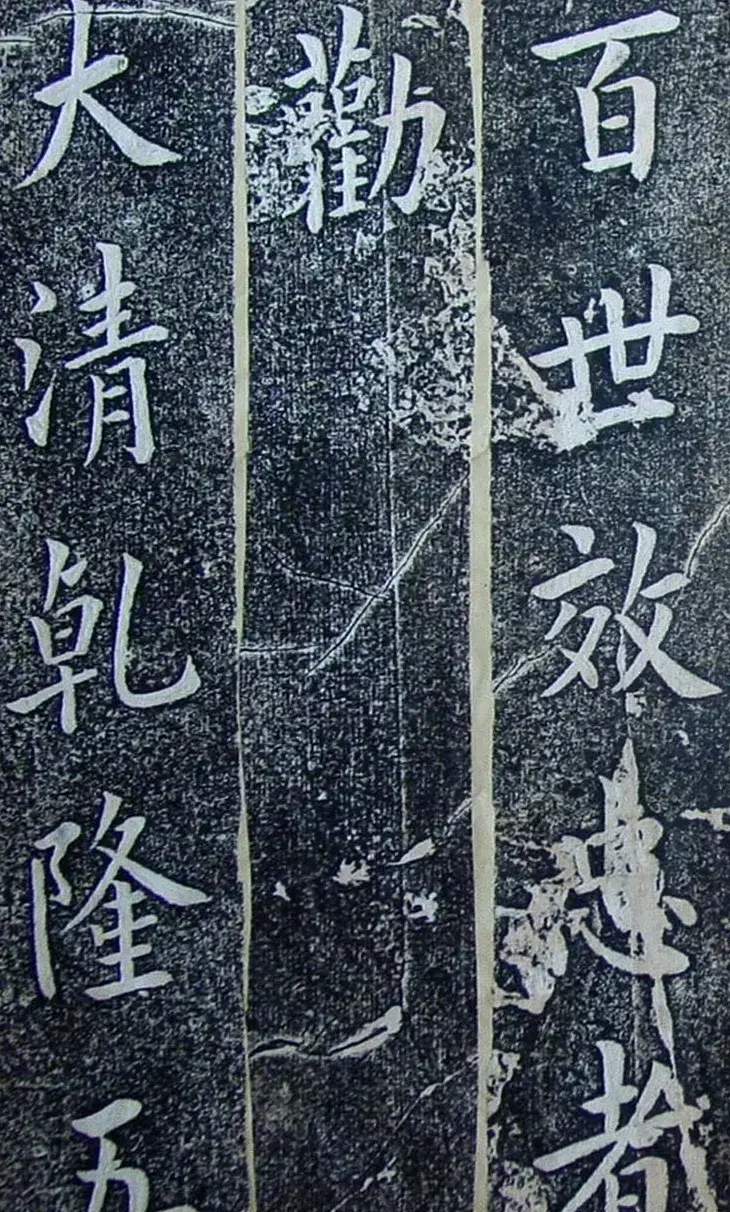 百世效忠者
勸
大清乾隆五